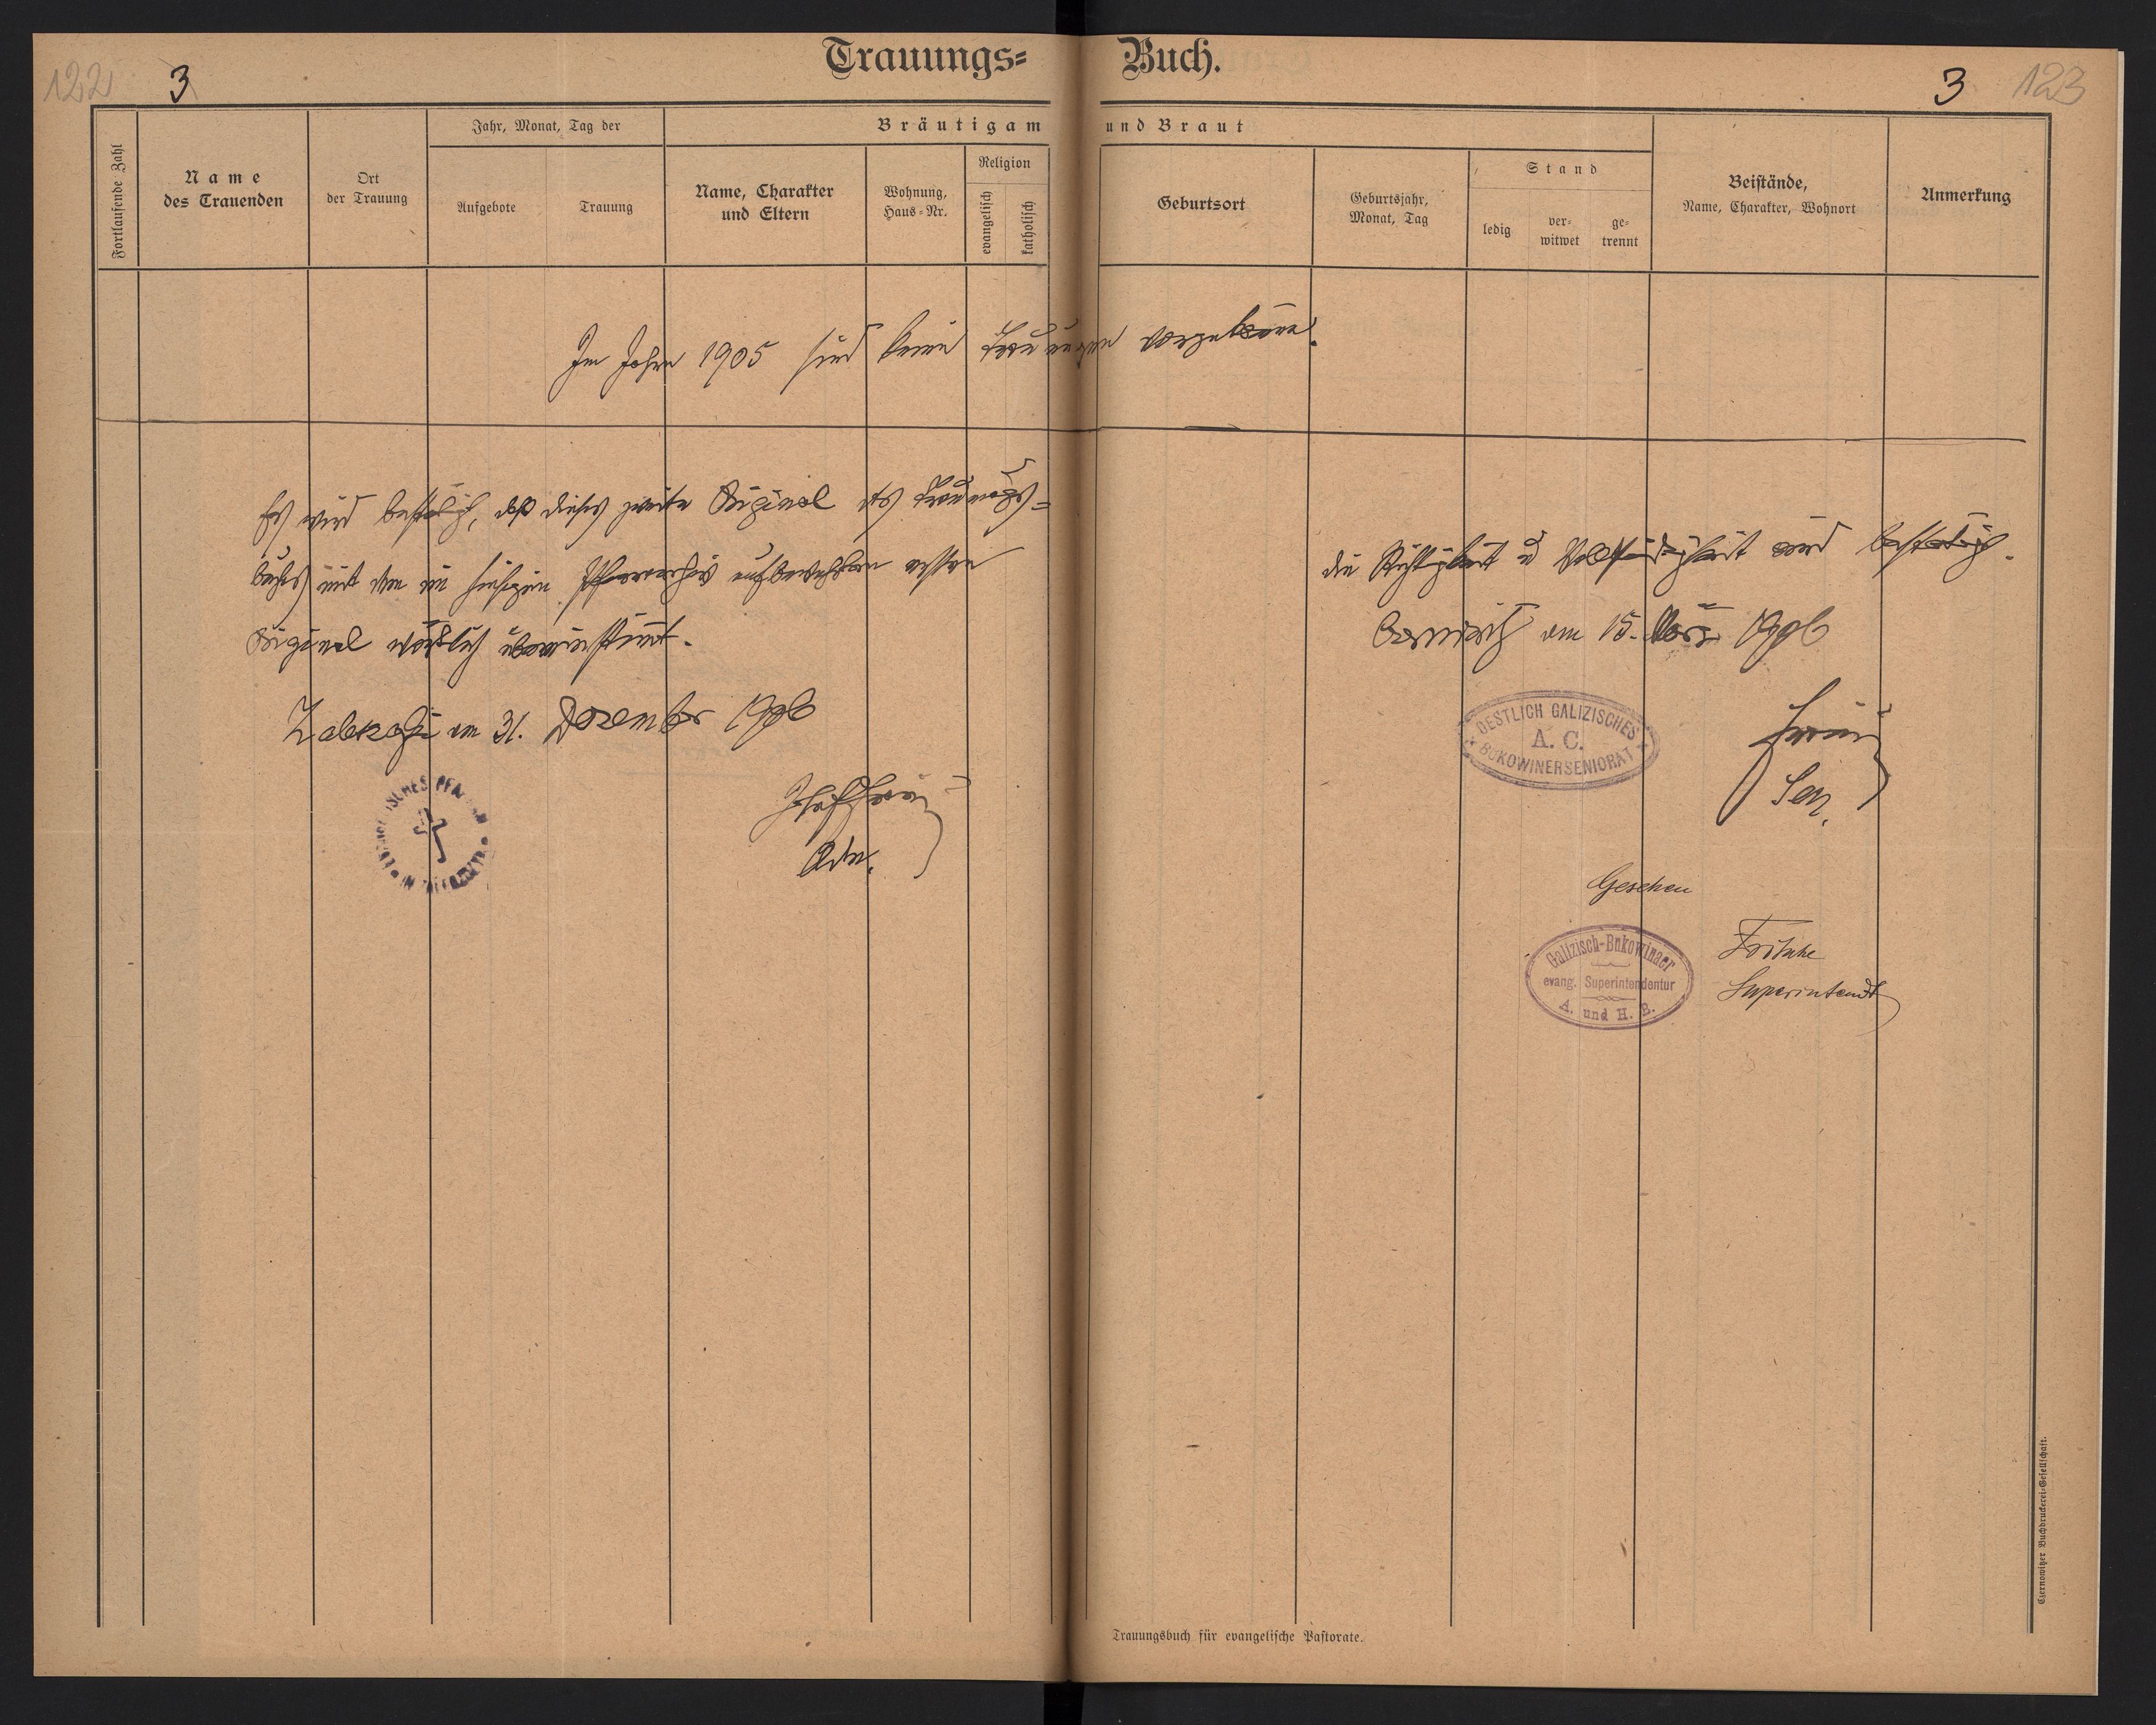 122 3
Trauungs= Buch.
3 123
Fortlaufende Zahl
Name
des Trauenden
Ort
der Trauung
Jahr, Monat, Tag der
Aufgebote
Trauung
Bräutigam und Braut
Name, Charakter
und Eltern
Wohnung,
Haus=Nr.
Religion
evangelisch
katholisch
Geburtsort
Geburtsjahr,
Monat, Tag
Stand
ledig
ver=
witwet
ge=
trennt
Beistände,
Name, Charakter, Wohnort
Anmerkung
Im Jahre 1905 sind keine Trauungen vorgekom̄en.
Es wird bestätigt, daß dieses zweite Original des Trauungs=
buches mit dem im hiesigen Pfarrarchiv aufbewahrten ersten
Original wörtlich übereinstim̄t.
am 31. Dezember 1906
IN
Die Richtigkeit u Vollständigkeit wird bestätigt.
am 15. März 1906
OESTLICH GALIZISCHES
A. C.
BUKOWINERSENIORAT
Sen.
Gesehen
Galizisch-Bukowinaer
evang. Superintendentur
A. und H. B.
Fritsche
Superintendt
Trauungsbuch für evangelische Pastorate.
Czernowitzer Buchdruckerei=Gesellschaft.